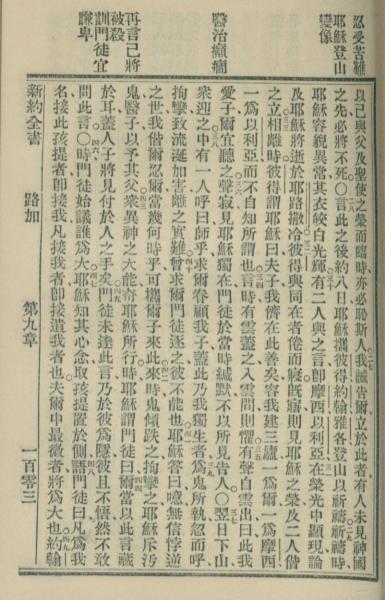 忍受苦難
耶穌登山
變像
醫治癲癇
再言己將
被殺
訓門徒宜
謙卑
以己與父及聖使之榮而臨時亦必恥斯人我誠告爾立於此者有人未見神國
之先必將不死〇言此之後約八日耶穌攜彼得約翰雅各登山以祈禱祈禱時
耶穌容貌異常其衣皎白光輝有二人與之言卽摩西以利亞在榮光中顯現論
及耶穌將逝於耶路撒冷彼得與同在者倦而寢旣寤則見耶穌之榮及二人偕
之立相離時彼得謂耶穌曰夫子我儕在此善矣容我建三廬一爲爾一爲摩西
一爲以利亞而不自知所謂也言時有雲蓋之入雲間則懼有聲自雲出曰此我
愛子爾宜聽之聲寂見耶穌獨在門徒於當時緘默不以所見告人〇翌日下山
衆迎之中有一人呼曰師乎求爾眷顧我子蓋此乃我獨生者爲鬼所執忽而呼
拘攣致流涎加害離之實難曾求爾門徒逐之彼不能也耶穌答曰噫無信悖逆
之世我偕爾忍爾當幾何時乎可攜爾子來此來時鬼傾跌之拘攣之耶穌斥污
鬼醫子以予其父衆異神之大能奇耶穌所行時耶穌謂門徒曰爾當以此言藏
於耳蓋人子將見付於人之手矣門徒未達此言乃於彼爲隱彼且不悟然不敢
問此言〇時門徒始議誰爲大耶穌知其心念取孩提置於側語門徒曰凡爲我
名接此孩提者卽接我凡接我者卽接遣我者也夫爾中最微者將爲大也約翰
新約全書 路加 第九章 一百零三